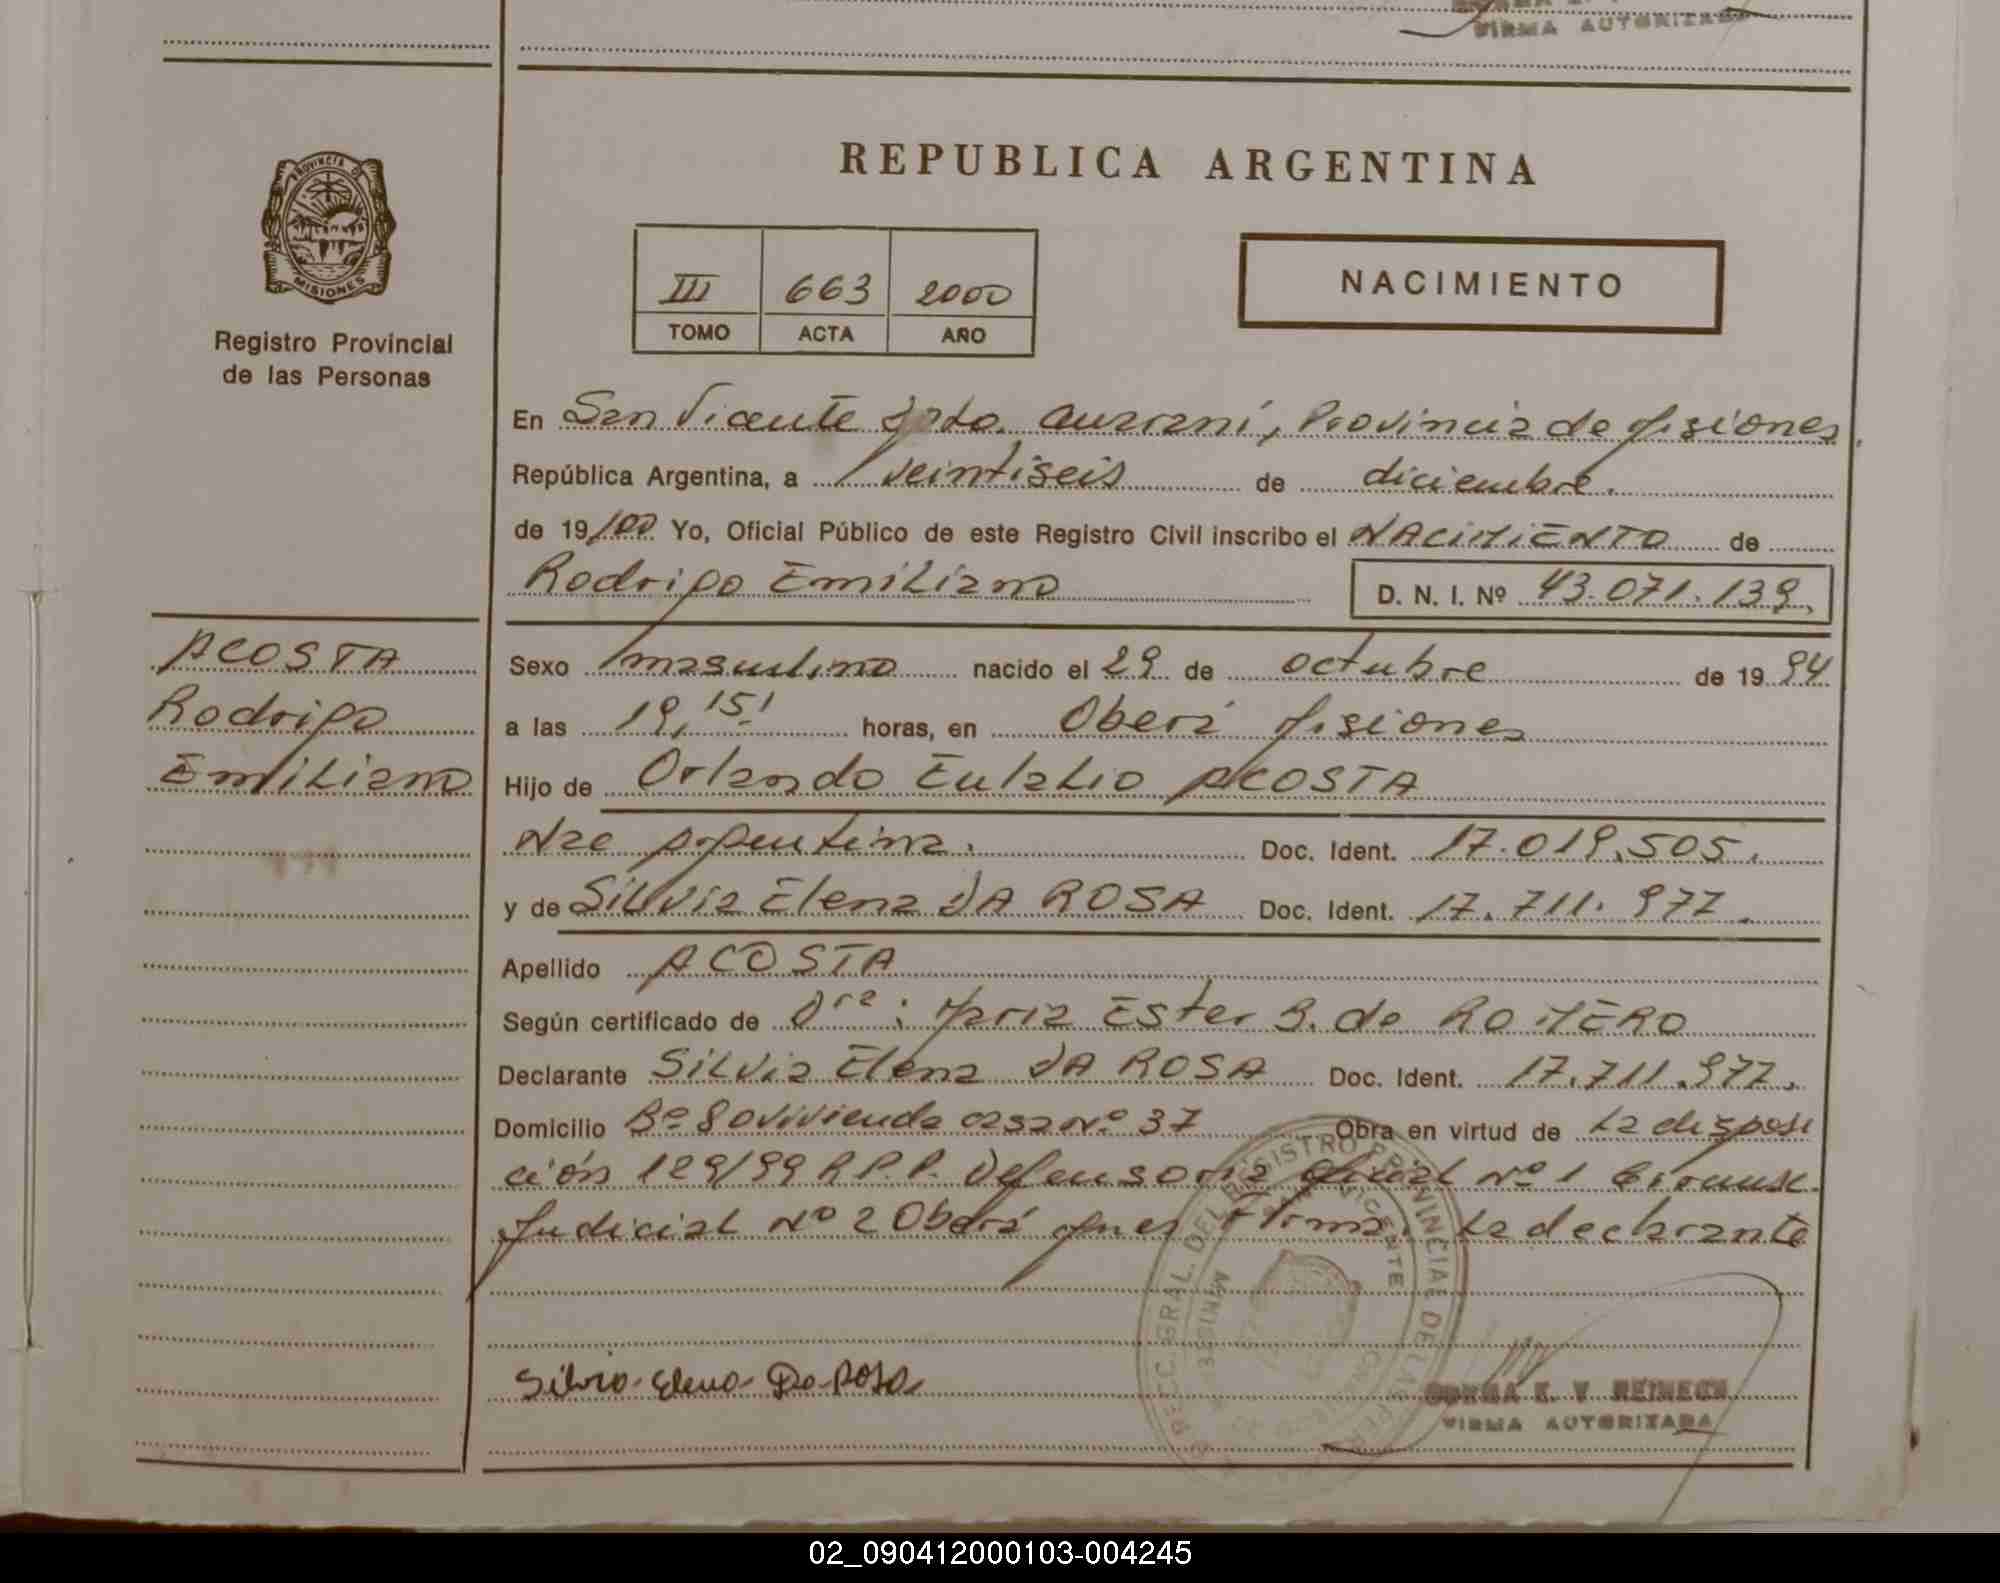 FIRMA AUTORIZADA
PROVINCIA DE
MISIONES
Registro Provincial
de las Personas
REPUBLICA ARGENTINA
III 663 2000
TOMO ACTA AÑO
NACIMIENTO
En San Vicente Dpto. Guaraní, Provincia de Misiones,
República Argentina, a veintiseis de diciembre.
de 19/00 Yo, Oficial Público de este Registro Civil inscribo el NACIMIENTO de
Rodrigo Emiliano D. N. I. Nº 43.071.139,
ACOSTA
Rodrigo
Emiliano
Sexo masculino nacido el 29 de octubre de 19 94
a las 19,15' horas, en Oberá Misiones
Hijo de Orlando Eulalio ACOSTA
Nac argentina. Doc. Ident. 17.019.505.
y de Silvia Elena DA ROSA Doc. Ident. 17.711.977.
Apellido ACOSTA
Según certificado de Dra: Maria Ester B. de ROMERO
Declarante Silvia Elena DA ROSA Doc. Ident. 17.711.977.
Domicilio Bº 80 vivienda casa Nº 37 Obra en virtud de La disposi
ción 129/99 R.P.P. Defensoria Oficial Nº 1 Circunsc.
Judicial Nº 2 Oberá Mnes Firma: La declarante
Silvia Elena Da Rosa
NORMA E. V. REINECK
FIRMA AUTORIZADA
02_090412000103-004245